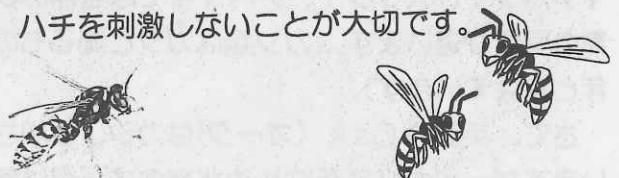 ハチを刺激しないことが大切です。